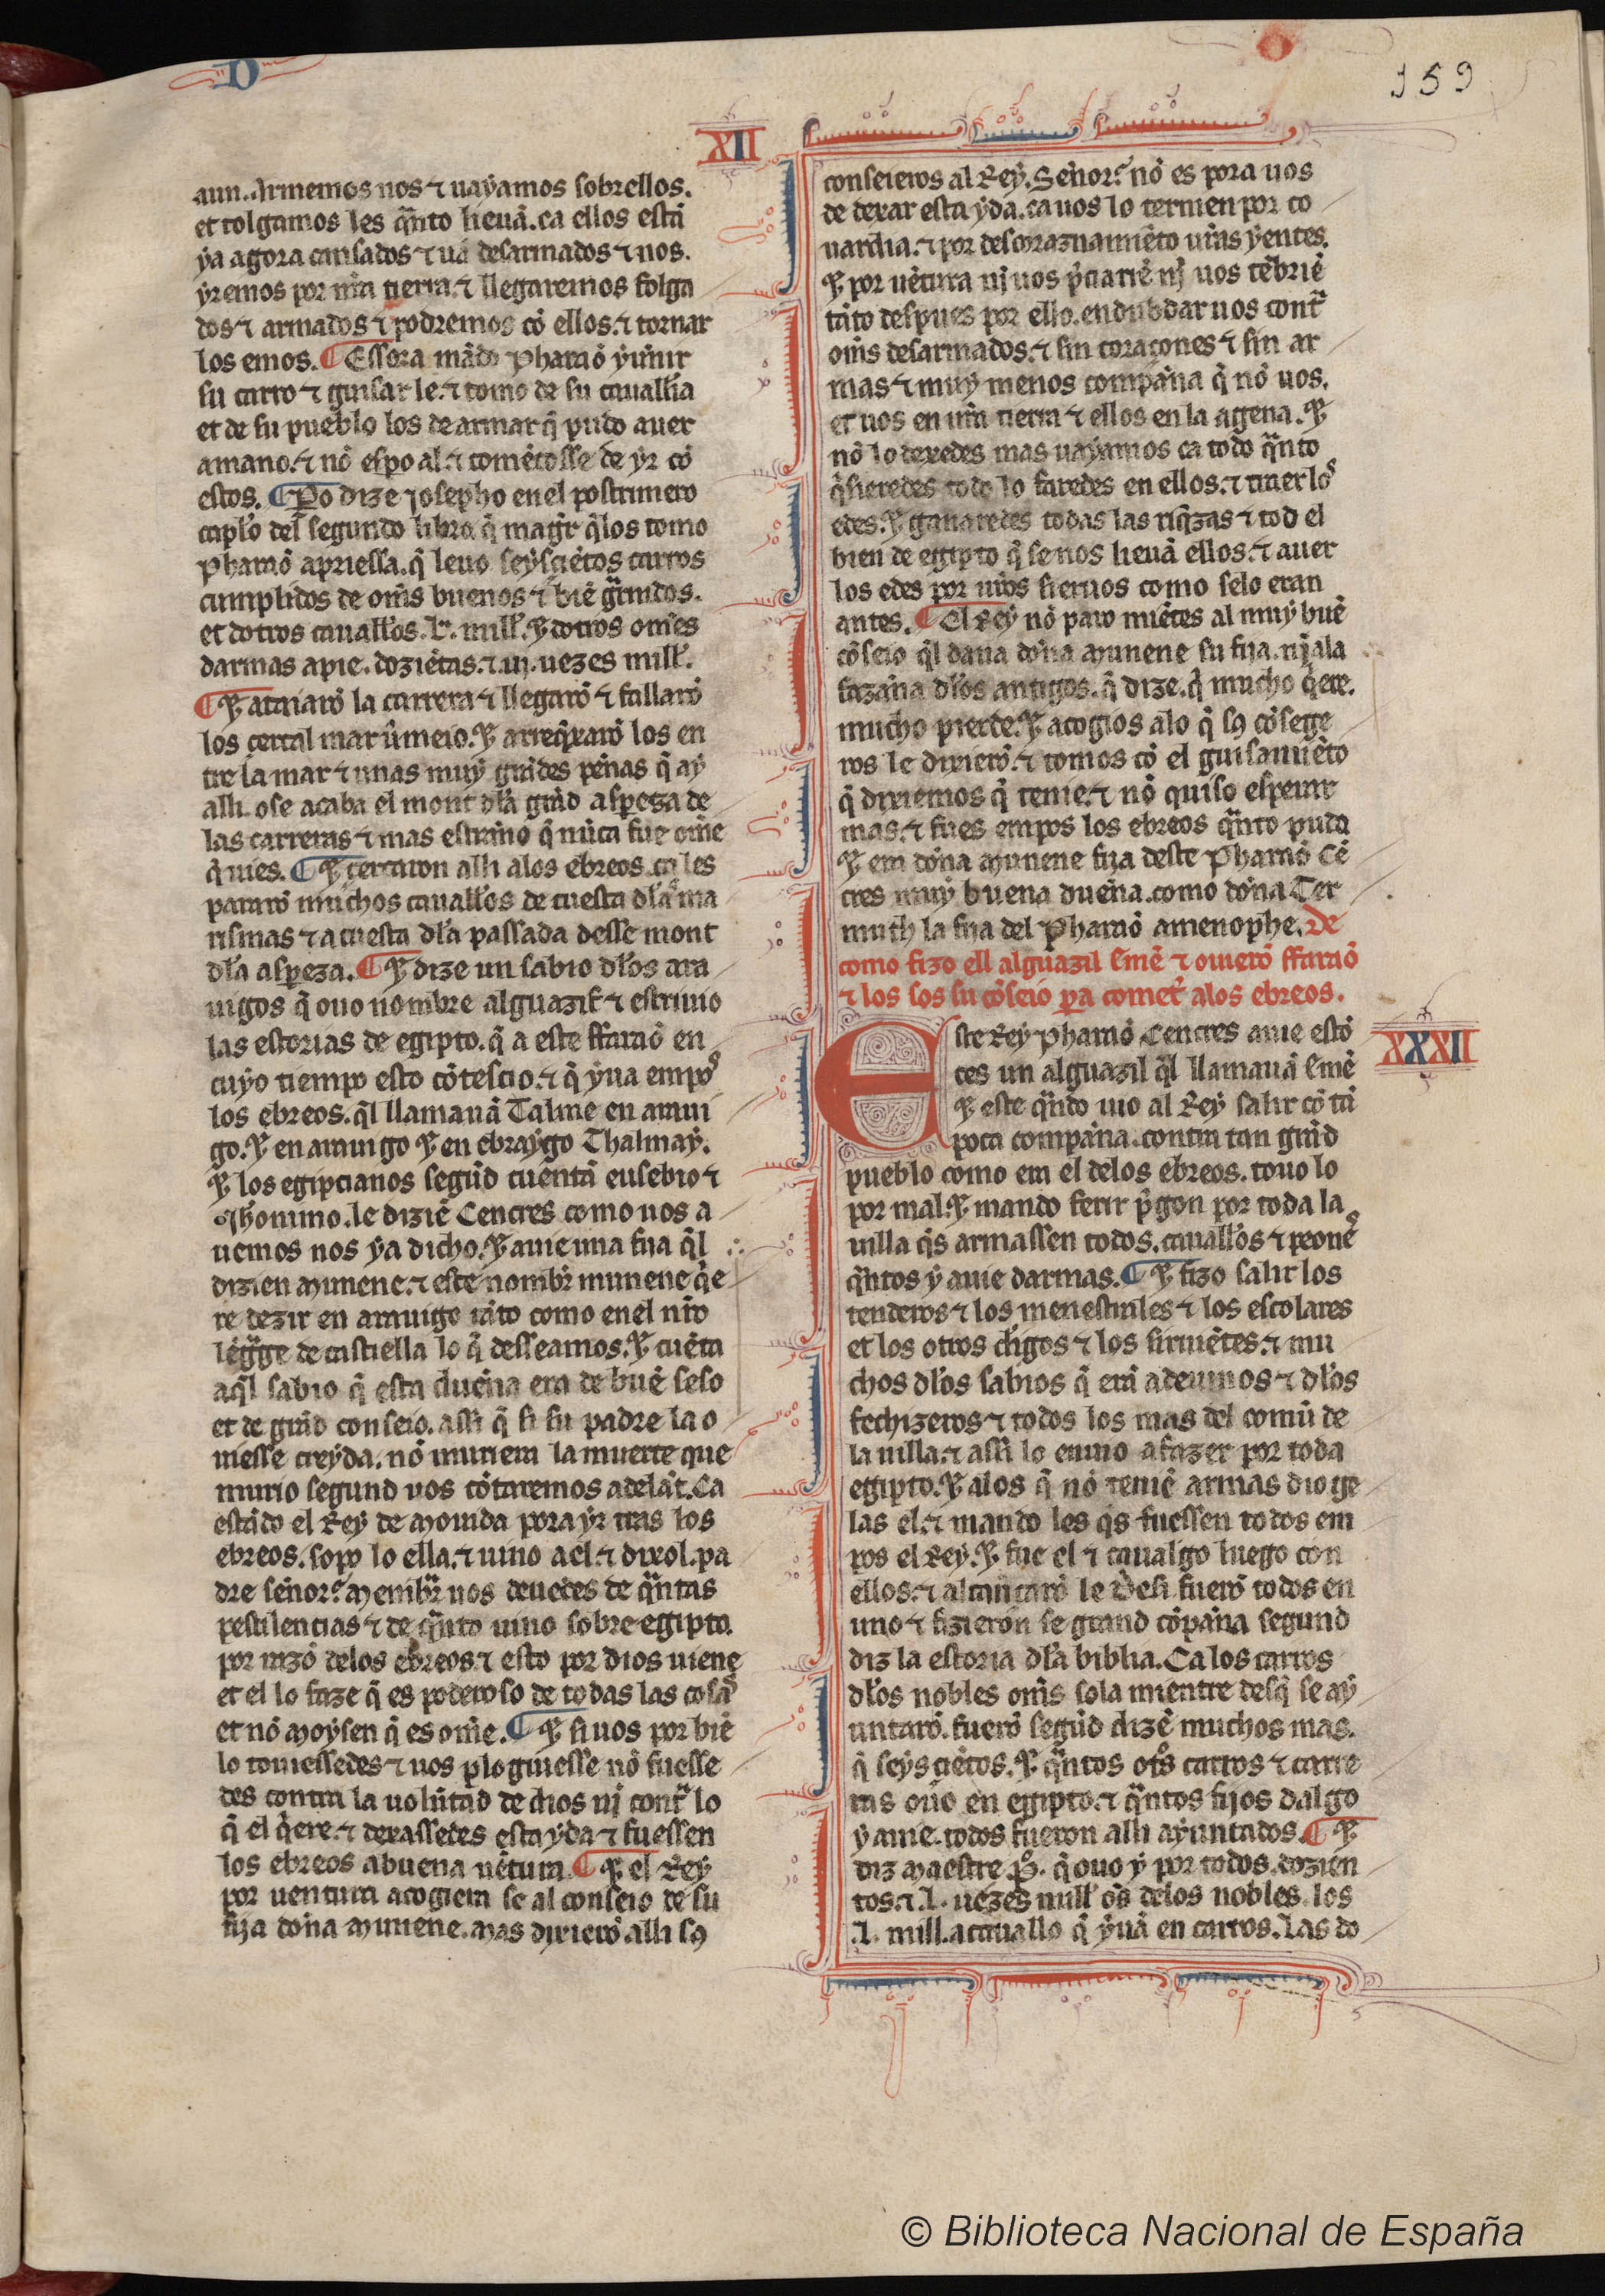 D
159
XII
aun. Armemos nos ⁊ uayamos sobrellos.
et tolgamos les q̃nto lieuã. ca ellos estã
ya agora cansados ⁊ uã desarmados ⁊ nos.
yremos por nr̃a tierra. ⁊ llegaremos folga
dos ⁊ armados ⁊ podremos cõ ellos. ⁊ tornar
los emos. ¶ Essora mãdo Pharaõ yũnir
su carro ⁊ guisar le. ⁊ tomo de su cauall'ia
et de su pueblo los de armar q̃ pudo auer
amano. ⁊ nõ esp̃o al. ⁊ comẽçosse de yr cõ
estos. ¶ Po dize Josepho en el postrimero
caplo del segundo libro. q̃ mag̃r q̃los tomo
Pharaõ apriessa. q̃ leuo seysciẽtos carros
cumplidos de om̃s buenos ⁊ biẽ guãdos.
et dotros cauall'os. L. mill. ⁊ dotros om̃es
darmas apie. doziẽtas. ⁊ .iij. uezes mill.
¶ ⁊ ataiarõ la carrera ⁊ llegarõ ⁊ fallarõ
los cercal mar ũmeio. ⁊ arreq̃xarõ los en
tre la mar ⁊ unas muy grãdes peñas q̃ ay
alli. ose acaba el mont dl'a grãd aspeza de
las carreras ⁊ mas estraño q̃ nũca fue om̃e
q̃ uies. ¶ ⁊ cercaron alli alos ebreos. ca les
pararõ muchos cauall'os de cuesta dl'as ma
rismas ⁊ a cuesta dl'a passada desse mont
dl'a aspeza. ¶ ⁊ dize un sabio dl'os ara
uigos q̃ ouo nombre alguazif. ⁊ escriuio
las estorias de egipto. q̃ a este ffaraõ en
cuyo tiempo esto cõtescio. ⁊ q̃ yua empos
los ebreos. q̃l llamauã Talme en araui
go. ⁊ en arauigo ⁊ en ebraygo Thalmay.
⁊ los egipcianos segũd cuentã eusebio ⁊
Jheronimo. le diziẽ Cencres como uos a
uemos nos ya dicho. ⁊ auie una fija q̃l
dizien munene. ⁊ este nombr̃ munene q̃e
re dezir en arauigo tãto como en el nr̃o
lẽg̃ge de castiella lo q̃ desseamos. ⁊ cuẽta
aq̃l sabio q̃ esta dueña era de buẽ seso
et de grãd conseio. assi q̃ si su padre la o
uiesse creyda. nõ muriera la muerte que
murio segund uos cõtaremos adelãt. Ca
estãdo el Rey de mouida pora yr tras los
ebreos. sopo lo ella. ⁊ uino a el. ⁊ dixol. pa
dre señor. membr̃ uos deuedes de q̃ntas
pestilencias ⁊ de q̃nto uino sobre egipto.
por razõ delos ebreos. ⁊ esto por dios uiene
et el lo faze q̃ es poderoso de todas las cosas
et nõ moysen q̃ es om̃e. ¶ ⁊ si uos por biẽ
lo touiessedes ⁊ uos ploguiesse nõ fuesse
des contra la uolũtad de dios nj contr̃ lo
q̃ el q̃ere. ⁊ dexassedes esta yda ⁊ fuessen
los ebreos abuena uẽtura. ¶ ⁊ el Rey
por uentura acogiera se al conseio de su
fija doña munene. mas dixierõ alli sus
conseieros al Rey. Señor. nõ es pora uos
de dexar esta yda. ca uos lo ternien por co
uardia. ⁊ por desorraznamiẽto ur̃as yentes.
⁊ por uẽtura nj uos p̃ciariẽ nj uos tẽbriẽ
tãto despues por ello. en dubdar uos contr̃
om̃s desarmados. ⁊ sin coraçones ⁊ sin ar
mas ⁊ muy menos compaña q̃ nõ uos.
et uos en ur̃a tierra ⁊ ellos en la agena. ⁊
nõ lo dexedes mas uayamos ca todo q̃nto
q̃sieredes todo lo faredes en ellos. ⁊ traer los
edes. ⁊ ganaredes todas las riq̃zas ⁊ tod el
bien de egipto q̃ se nos lieuã ellos. ⁊ auer
los edes por ur̃os sieruos como selo eran
antes. ¶ El Rey nõ paro miẽtes al muy buẽ
cõseio q̃l daua doña munene su fija. nj ala
fazaña dl'os antigos. q̃ dize. q̃ mucho q̃ere.
mucho pierde. ⁊ acogios alo q̃ sus cõsege
ros le dixierõ. ⁊ tomos cõ el guisamiẽto
q̃ dixiemos q̃ tenie. ⁊ nõ quiso esperar
mas. ⁊ fues empos los ebreos q̃nto pudo
⁊ era doña munene fija deste Pharaõ Cẽ
cres muy buena dueña. como doña Ter
muth la fija del Pharaõ amenophe. De
como fizo ell alguazil Emẽ ⁊ ouierõ ffaraõ
⁊ los sos su cõseio pa comet̃ alos ebreos.
XXXII
Este Rey Pharaõ Cencres auie estõ
ces un alguazil q̃l llamauã Emẽ
⁊ este q̃ndo uio al Rey salir cõ tã
poca compaña. contra tan grãd
pueblo como era el delos ebreos. touo lo
por mal. ⁊ mando ferir p̃gon por toda la
uilla q̃s armassen todos. cauall'os ⁊ peonẽs
q̃ntos y auie darmas. ¶ ⁊ fizo salir los
tenderos ⁊ los menestrales ⁊ los escolares
et los otros cl'igos ⁊ los siruiẽtes. ⁊ mu
chos dl'os sabios q̃ erã adeuinos ⁊ dl'os
fechizeros ⁊ todos los mas del comũ de
la uilla. ⁊ assi lo enuio afazer por toda
egipto. ⁊ alos q̃ nõ teniẽ armas dio ge
las el. ⁊ mando les q̃s fuessen todos em
pos el Rey. ⁊ fue el ⁊ caualgo luego con
ellos. ⁊ alcançarõ le. Desi fuerõ todos en
uno ⁊ fizieron se grand cõpaña segund
diz la estoria dl'a biblia. Ca los carros
dl'os nobles om̃s sola mientre desq̃ se ay
untarõ. fuerõ segũd dizẽ muchos mas.
q̃ seysciẽtos. ⁊ q̃ntos otr̃s carros ⁊ carre
tas ouo en egipto. ⁊ q̃ntos fijos dalgo
y auie. todos fueron alli ayuntados. ¶ ⁊
diz maestre P̃. q̃ ouo y por todos. dozien
tos. ⁊ .l. uezes mill om̃s delos nobles. los
.l. mill. acauallo q̃ yuã en carros. Las do
© Biblioteca Nacional de España